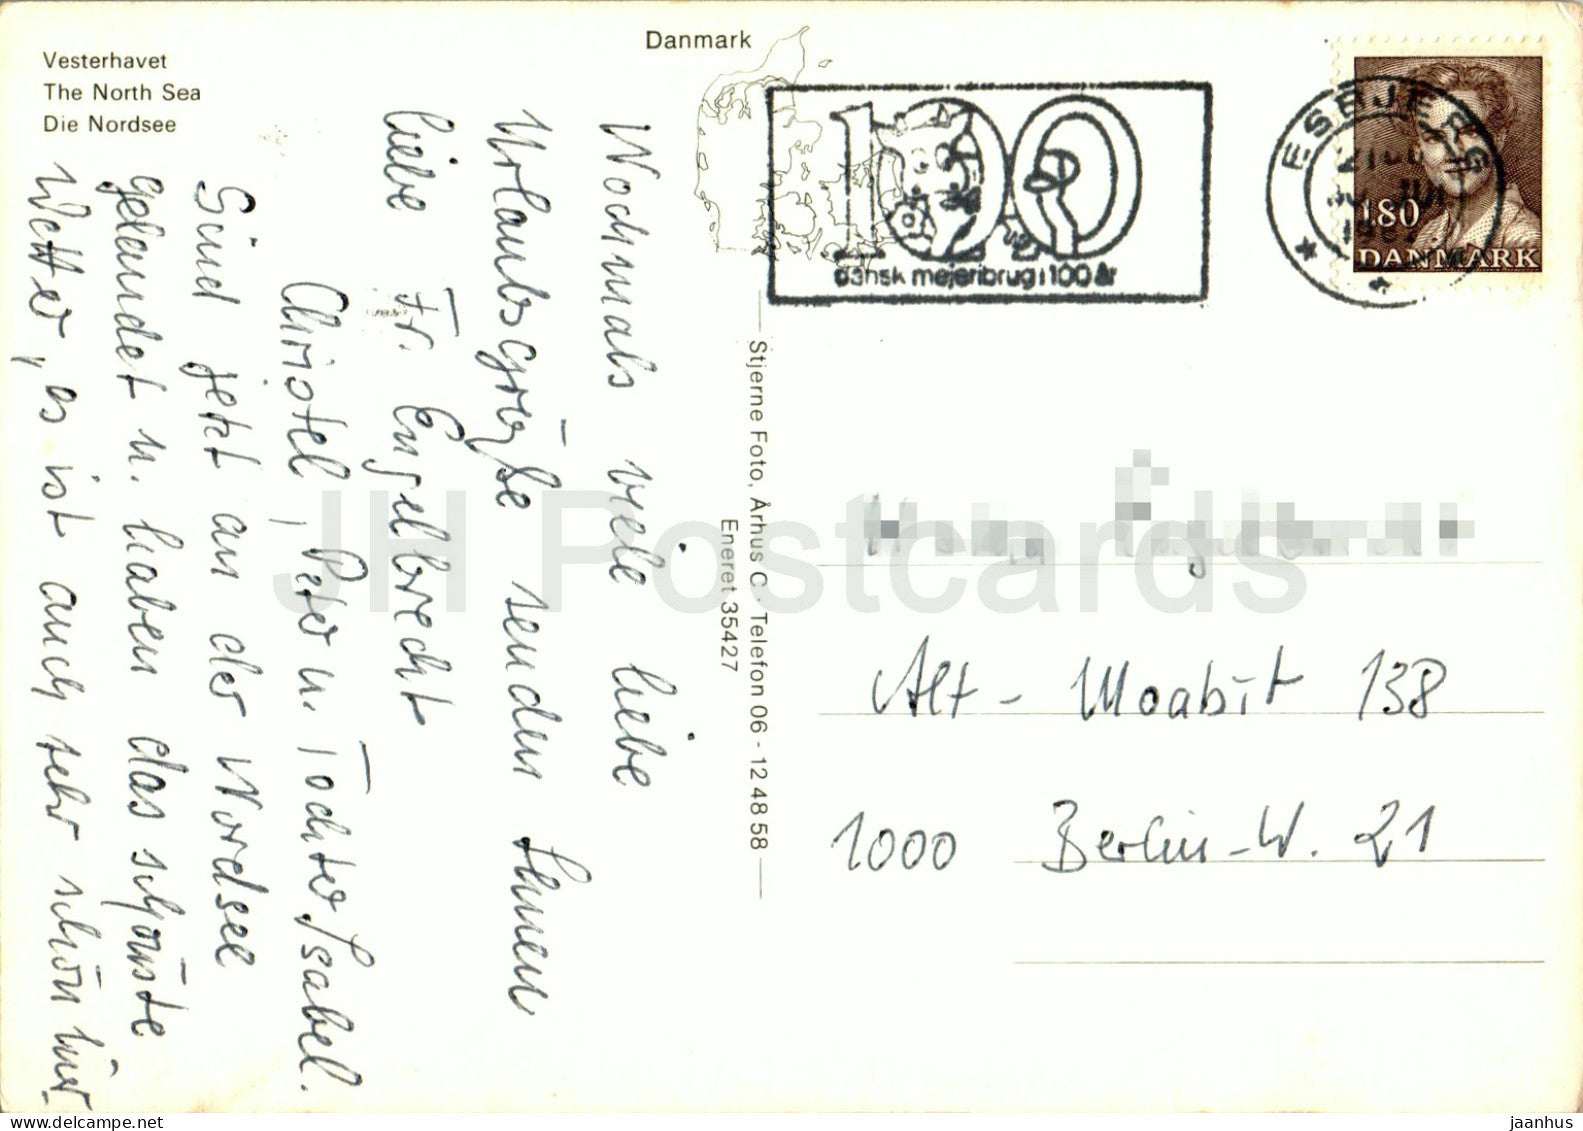 Vesterhavet
The North Sea
Die Nordsee
Danmark
100
dansk mejeribrug i 100 år
ESBJERG
180
DANMARK
Nochmals viele liebe
Urlaubsgrüße senden Ihnen
liebe Fr. Engelbrecht
Christel, Peter u. Tochter Isabel.
Sind jetzt an der Nordsee
gelandet u. haben das schönste
Wetter, es ist auch sehr schön hier
Stjerne Foto, Århus C. Telefon 06 - 12 48 58
Eneret 35427
Alt - Moabit 138
1000 Berlin-W. 21
JH Postcards
delcampe.net
jaanhus